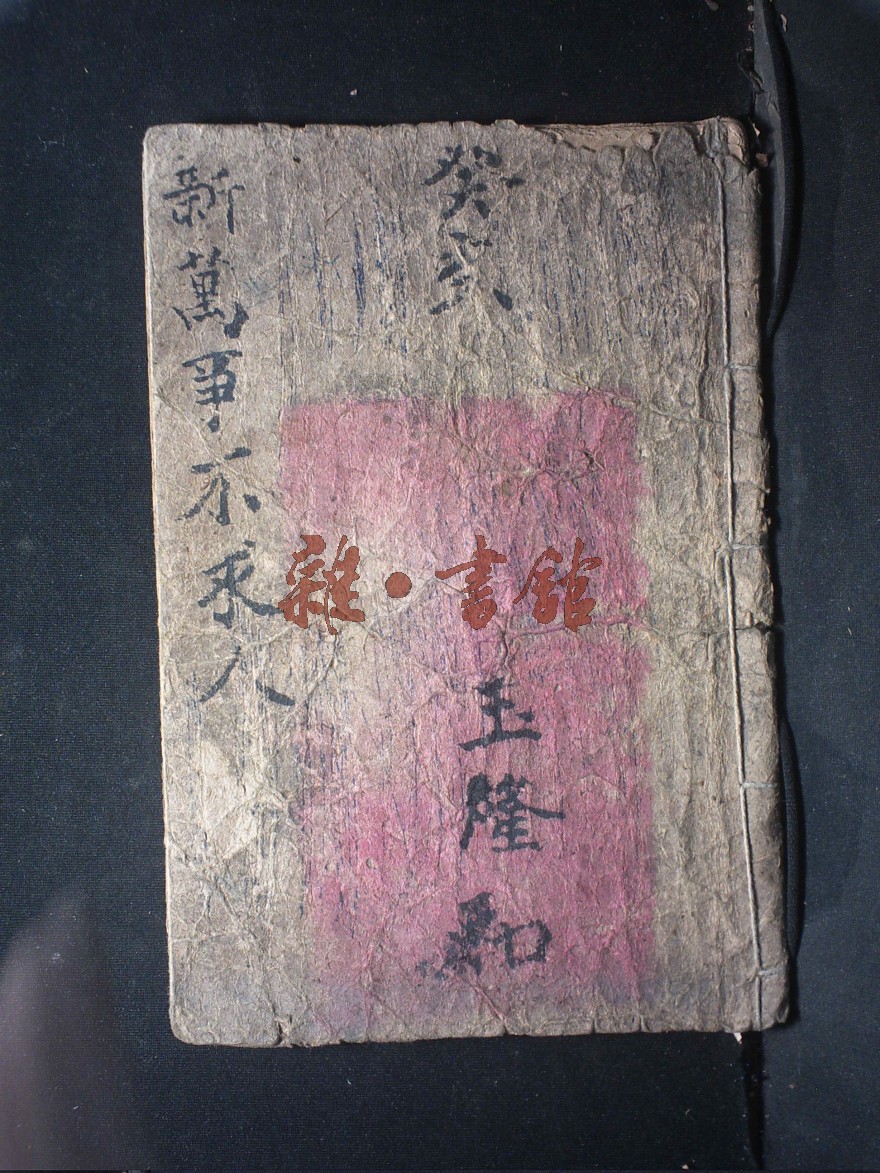 癸亥
玉隆和
新萬事不求人
雜·書館